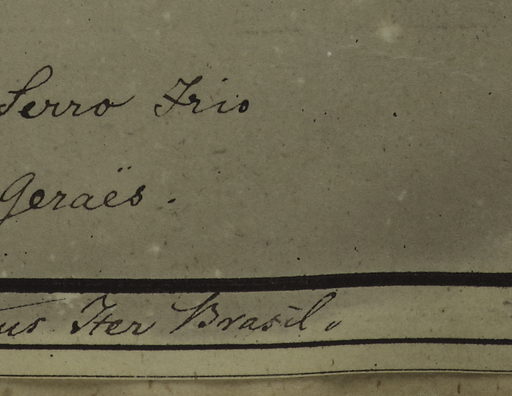 Serro Frio
Geraës.
us Iter Brasil.